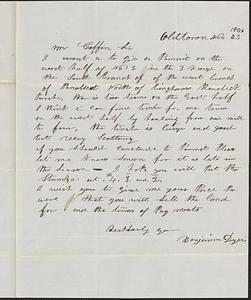 Oldtown Nov 23 1846
Mr Coffin Sir
I want a to git a Permit on the
west half of No 2 in the 3 range on
the South Branch of the west Branch
of Penobscot North of
there is two teams on the East half
I think i can find timber for one team
on the west half by hauling from one mill
to four, the timber is large and good
but very
if you Should Conclude to Permit Pleas
let me know Soon for it is late in
the Season — I hope you will Put the
Stumpage at 4. 3. and 2.
I wish you to give me your Price
that you will Sell the Land
for and the terms of Pay ments
Respectfully you
Benjamin Dyer